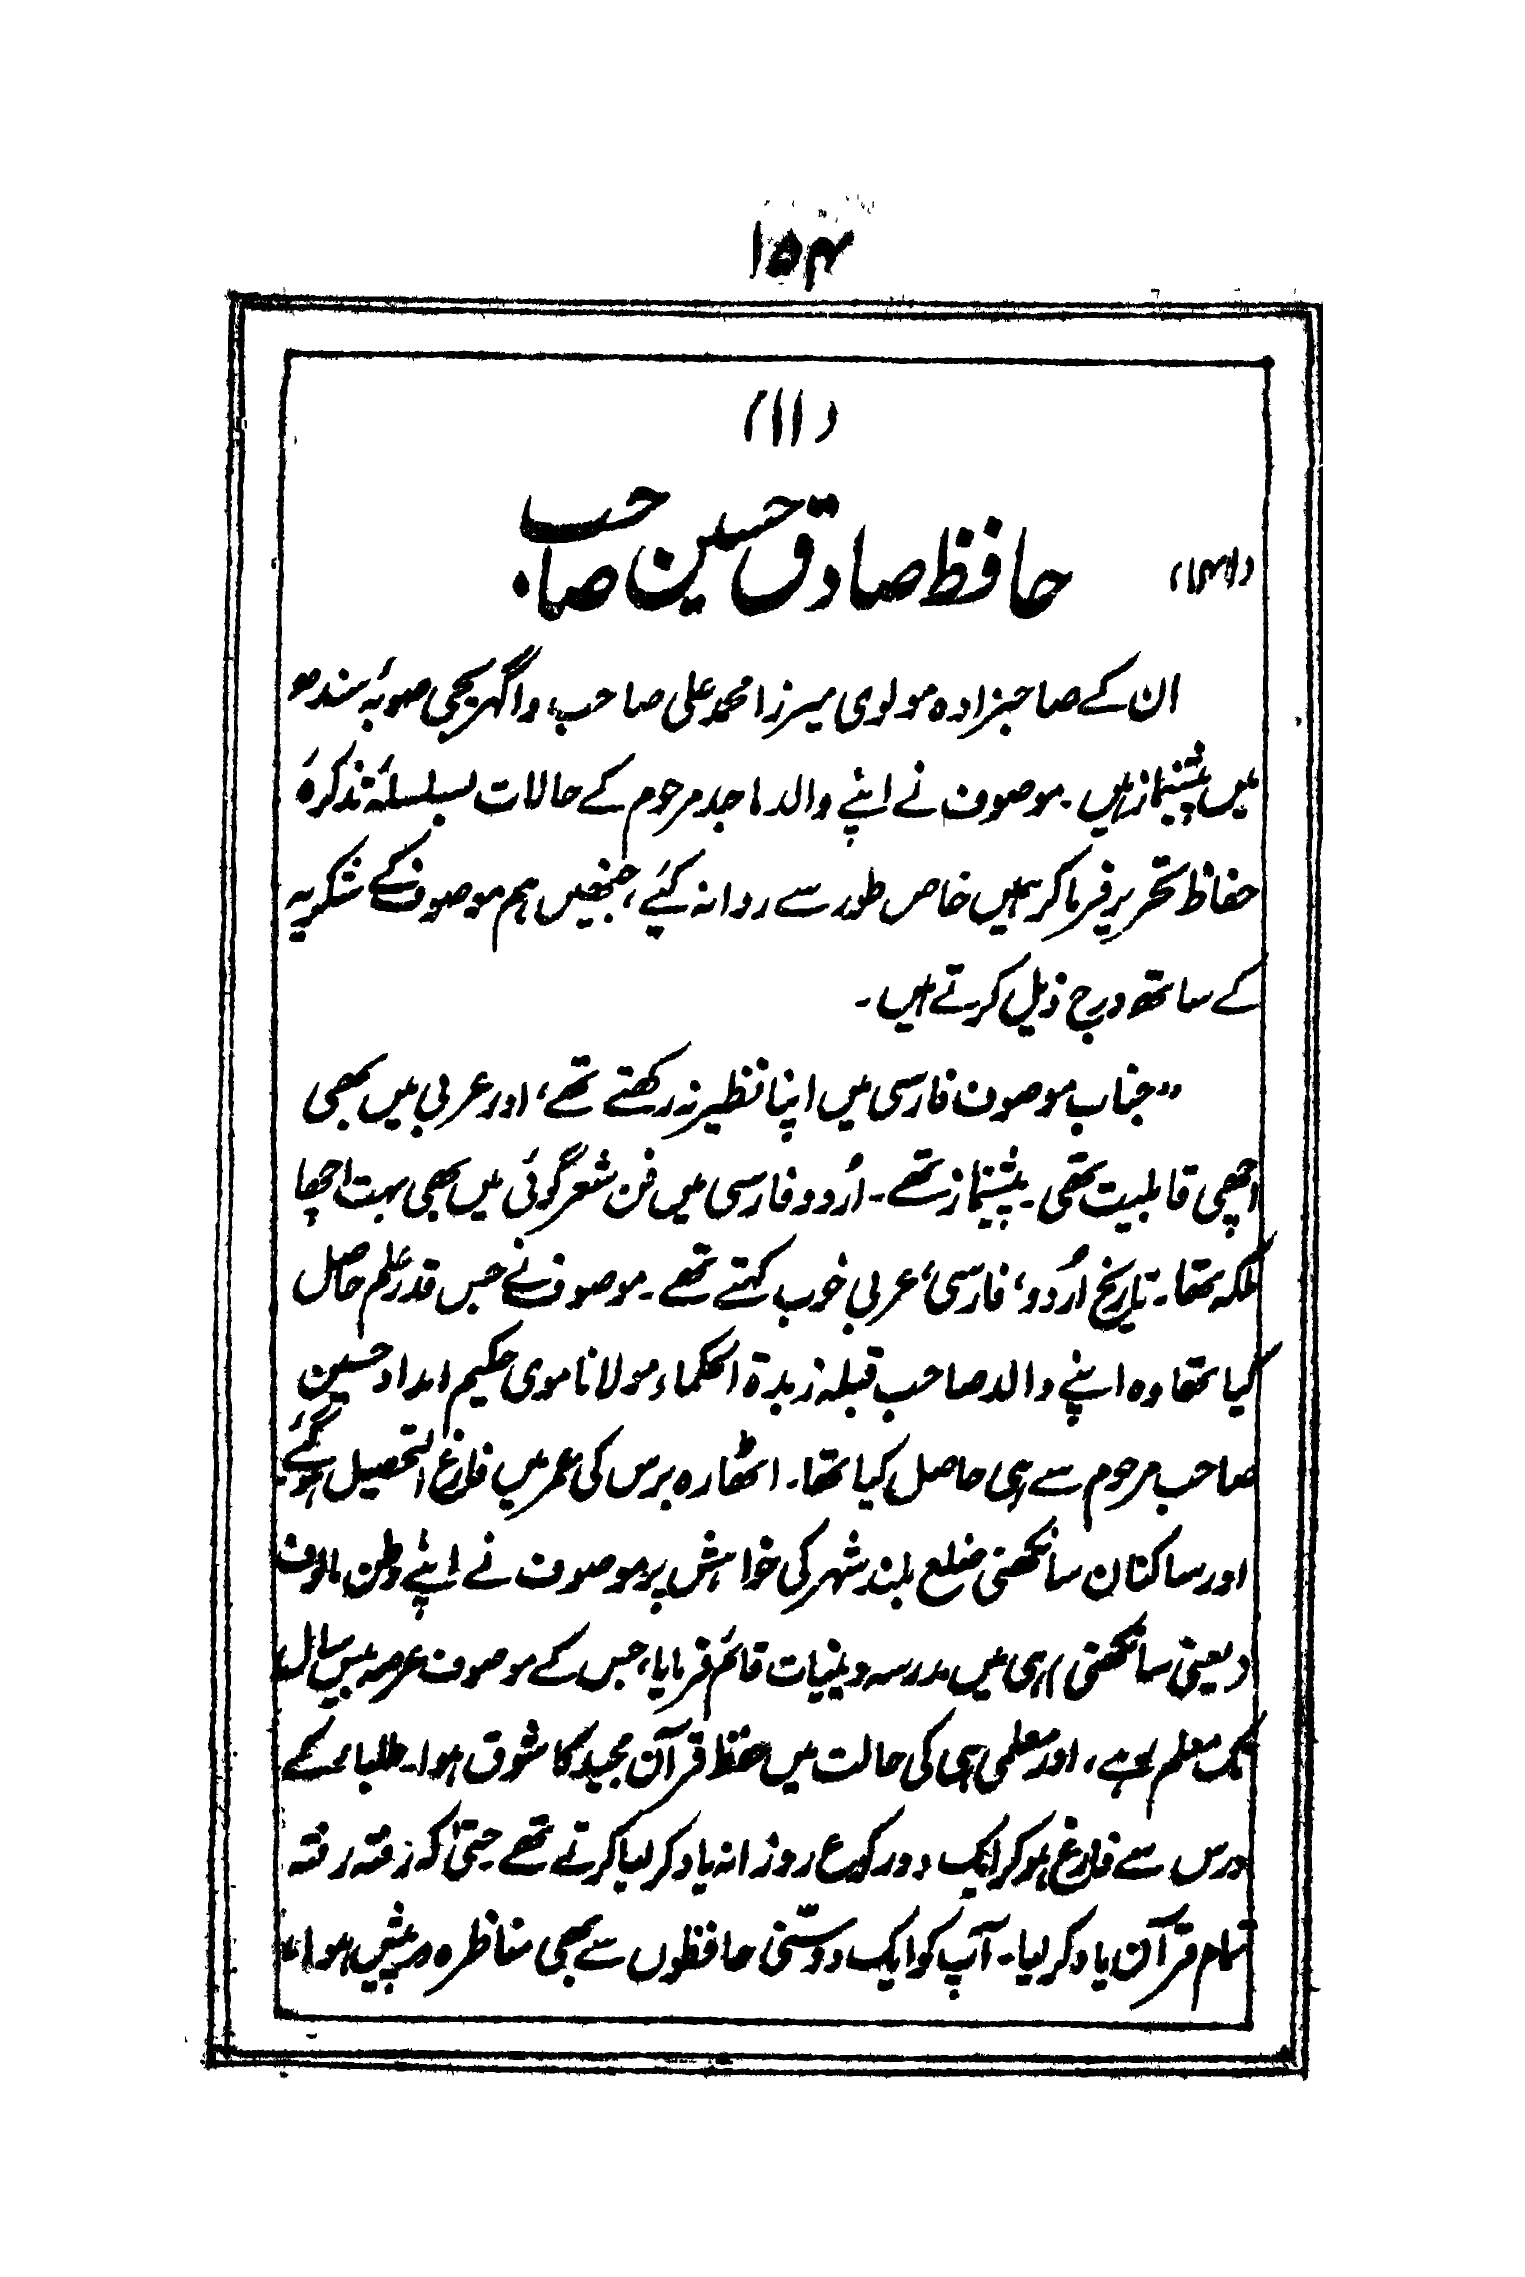 ۱۵۴
(۱۱)
حافظ صادق حسین صاحب
ان کے صاحبزادہ مولوی میرزا محمد علی صاحب، واگہریجی صوبۂ سندھ
میں پیشنماز ہیں۔ موصوف نے اپنے والد ماجد مرحوم کے حالات بسلسلۂ تذکرۂ
حفاظ تحریر فرما کر ہمیں خاص طور سے روانہ کئے، جنھیں ہم موصوف کے شکریہ
کے ساتھ درج ذیل کرتے ہیں۔
"جناب موصوف فارسی میں اپنا نظیر نہ رکھتے تھے، اور عربی میں بھی
اچھی قابلیت تھی۔ پیشنماز تھے۔ اُردو فارسی میں فن شعر گوئی میں بھی بہت اچھا
ملکہ تھا۔ تاریخ اُردو، فارسی، عربی خوب کہتے تھے۔ موصوف نے جس قدر علم حاصل
کیا تھا وہ اپنے والد صاحب قبلہ زبدۃ الحکماء مولانا موی حکیم امداد حسین
صاحب مرحوم سے ہی حاصل کیا تھا۔ اٹھارہ برس کی عمر میں فارغ التحصیل ہوگئے
اور ساکنان سانکھنی ضلع بلند شہر کی خواہش پر موصوف نے اپنے وطن مالوف
(یعنی سانکھنی) ہی میں مدرسہ دینیات قائم فرمایا، جس کے موصوف عرصہ بیس سال
تک معلم رہے، اور معلمی ہی کی حالت میں حفظ قرآن مجید کا شوق ہوا۔ طلباء کے
درس سے فارغ ہوکر ایک دو رکوع روزانہ یاد کر لیا کرتے تھے حتیٰ کہ رفتہ رفتہ
تمام قرآن یاد کر لیا۔ آپ کو ایک دو سُنّی حافظوں سے بھی مناظرہ درپیش ہوا،